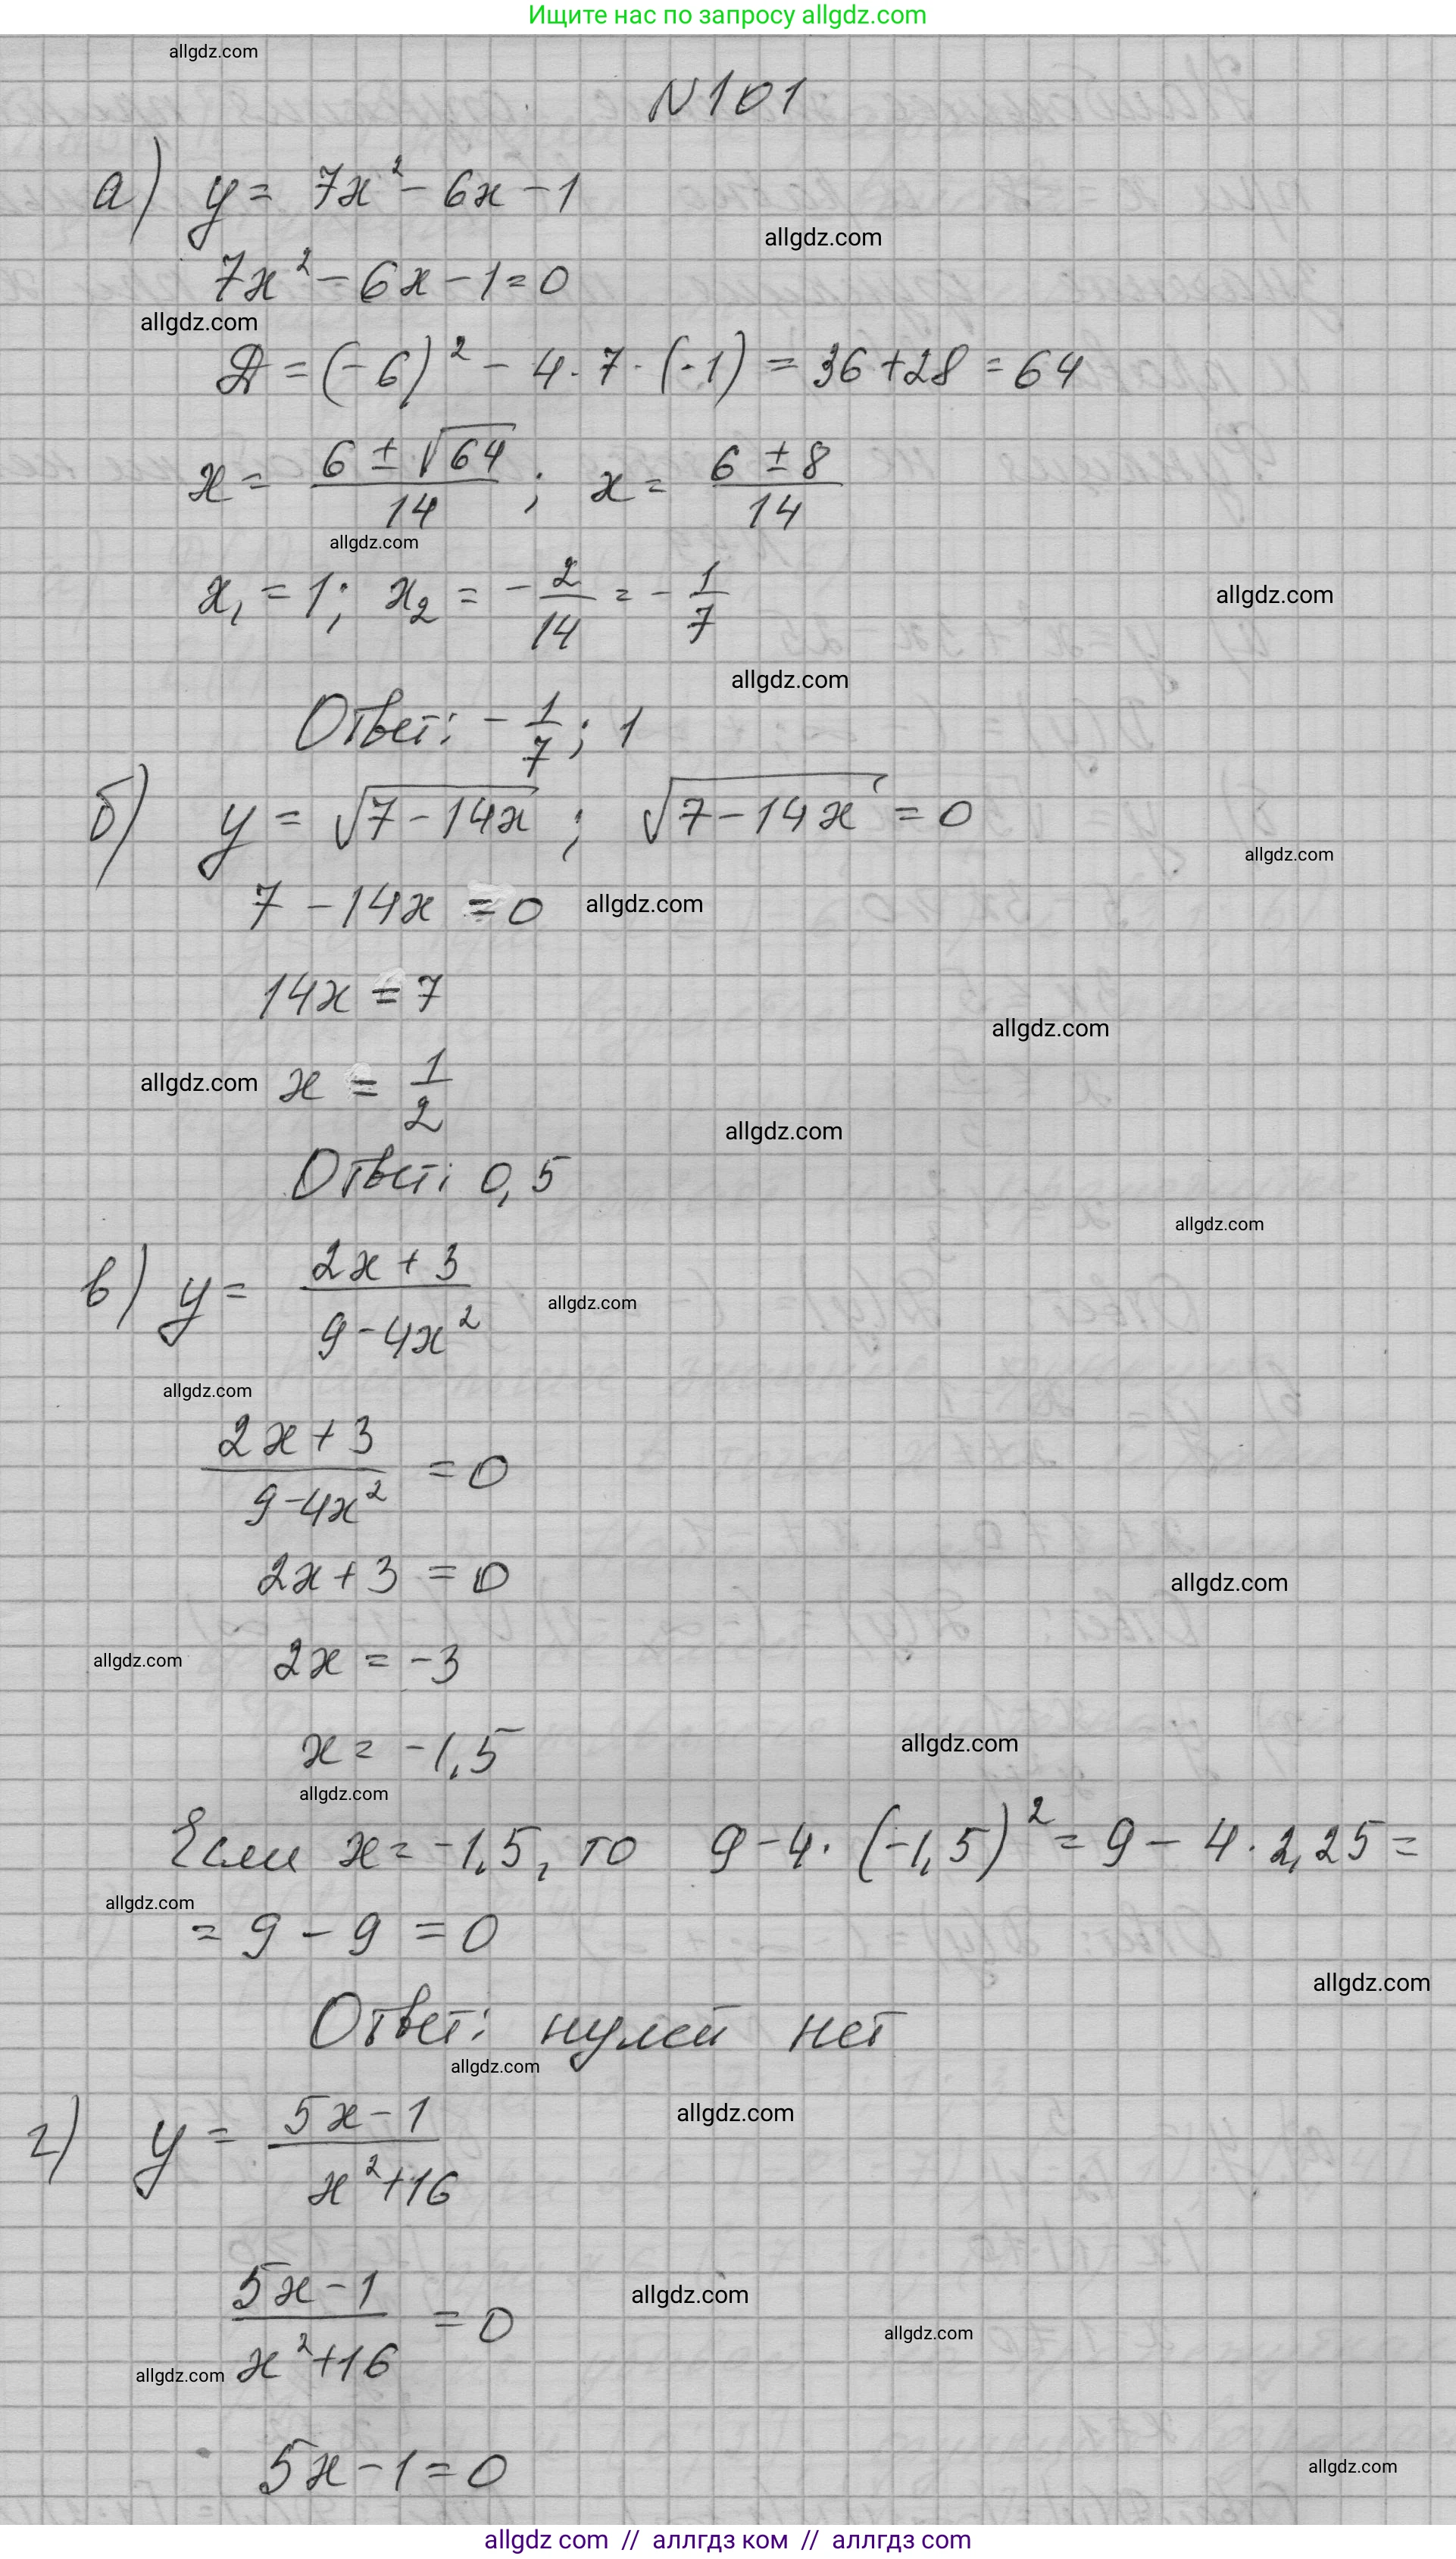 Ищите нас по запросу allgdz.com
allgdz.com
N101
а) y = 7x² - 6x - 1
allgdz.com
7x² - 6x - 1 = 0
allgdz.com
Д = (-6)² - 4 · 7 · (-1) = 36 + 28 = 64
x = (6 ± √64)/14 ; x = (6 ± 8)/14
allgdz.com
x₁ = 1; x₂ = -2/14 = -1/7
allgdz.com
allgdz.com
Ответ: -1/7; 1
б) y = √(7-14x) ; √(7-14x) = 0
allgdz.com
7 - 14x = 0
allgdz.com
14x = 7
allgdz.com
allgdz.com x = 1/2
allgdz.com
Ответ: 0,5
allgdz.com
в) y = (2x+3)/(9-4x²)
allgdz.com
allgdz.com
(2x+3)/(9-4x²) = 0
2x + 3 = 0
allgdz.com
2x = -3
allgdz.com
x = -1,5
allgdz.com
allgdz.com
Если x = -1,5, то 9 - 4 · (-1,5)² = 9 - 4 · 2,25 =
allgdz.com
= 9 - 9 = 0
allgdz.com
Ответ: нулей нет
allgdz.com
allgdz.com
г) y = (5x-1)/(x²+16)
(5x-1)/(x²+16) = 0
allgdz.com
allgdz.com
allgdz.com
5x - 1 = 0
allgdz.com
allgdz com // аллгдз ком // аллгдз com